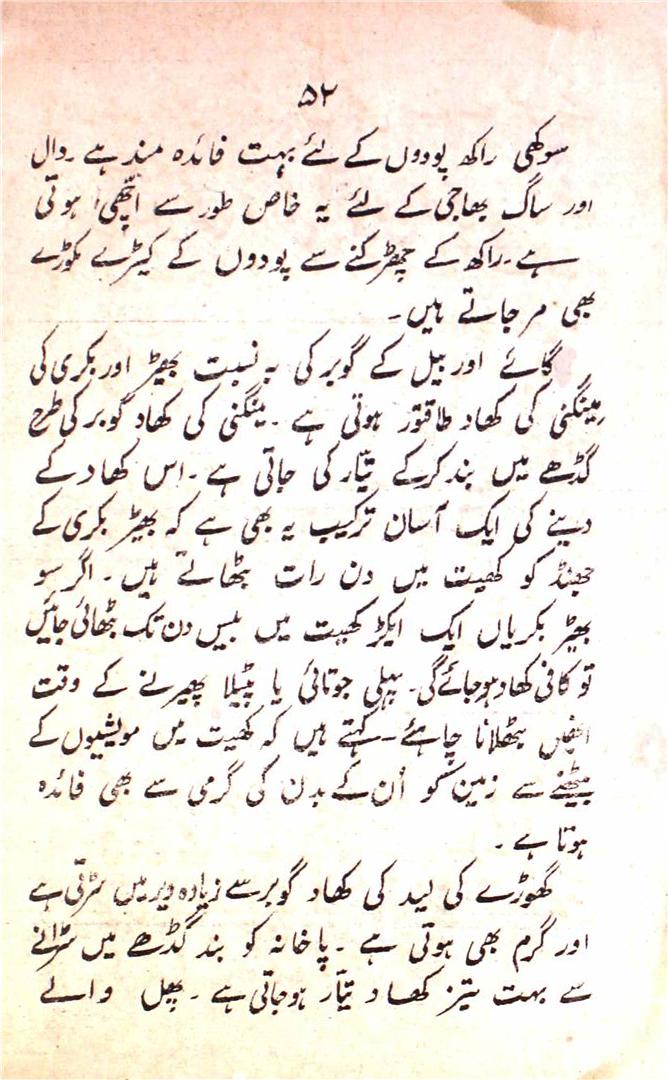 ۵۲
سوکھی راکھ پودوں کے لئے بہت فائدہ مند ہے ۔ دال
اور ساگ بھاجی کے لئے یہ خاص طور سے اچھی ہوتی
ہے ۔ راکھ کے چھڑکنے سے پودوں کے کیڑے مکوڑے
بھی مر جاتے ہیں ۔
گائے اور بیل کے گوبر کی بہ نسبت بھیڑ اور بکری کی
مینگنی کی کھاد طاقتور ہوتی ہے ۔ مینگنی کی کھاد گوبر کی طرح
گڈھے میں بند کرکے تیّار کی جاتی ہے ۔ اس کھاد کے
دینے کی ایک آسان ترکیب یہ بھی ہے کہ بھیڑ بکری کے
جھنڈ کو کھیت میں دن رات بٹھاتے ہیں ۔ اگر سو
بھیڑ بکریاں ایک ایکڑ کھیت میں بیس دن تک بٹھائی جائیں
تو کافی کھاد ہو جائے گی ۔ پہلی جوتائی یا پٹیلا پھیرنے کے وقت
انھیں بٹھلانا چاہئے ۔ کہتے ہیں کہ کھیت میں مویشیوں کے
بیٹھنے سے زمین کو اُن کے بدن کی گرمی سے بھی فائدہ
ہوتا ہے ۔
گھوڑے کی لید کی کھاد گوبر سے زیادہ دیر میں سڑتی ہے
اور گرم بھی ہوتی ہے ۔ پاخانہ کو بند گڈھے میں سڑانے
سے بہت تیز کھاد تیّار ہو جاتی ہے ۔ پھل والے